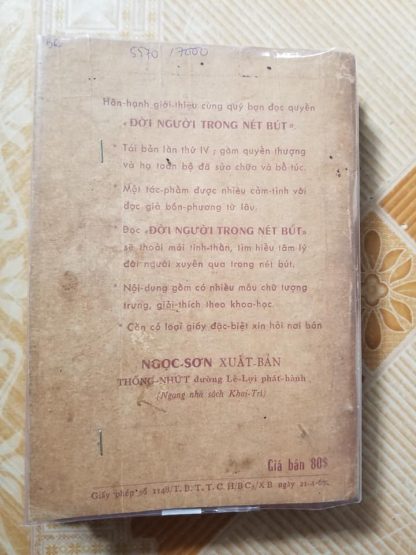 5570 / 7000
Hân-hạnh giới-thiệu cùng quý bạn đọc quyển
«ĐỜI NGƯỜI TRONG NÉT BÚT».
* Tái bản lần thứ IV ; gồm quyển thượng
và hạ toàn bộ đã sửa chữa và bổ túc.
* Một tác-phẩm được nhiều cảm-tình với
đọc giả bốn-phương từ lâu.
* Đọc «ĐỜI NGƯỜI TRONG NÉT BÚT»
sẽ thoải mái tinh-thần, tìm hiểu tâm lý
đời người xuyên qua trong nét bút.
* Nội-dung gồm có nhiều mẫu chữ tượng
trưng, giải-thích theo khoa-học.
* Còn có loại giấy đặc-biệt xin hỏi nơi bán
NGỌC-SƠN XUẤT-BẢN
THỐNG-NHỨT đường Lê-Lợi phát-hành
(Ngang nhà sách Khai-Trí)
Giá bán 80$
Giấy phép số 1148/T.B.T.T.C.H/BC3/XB ngày 21-4-69.